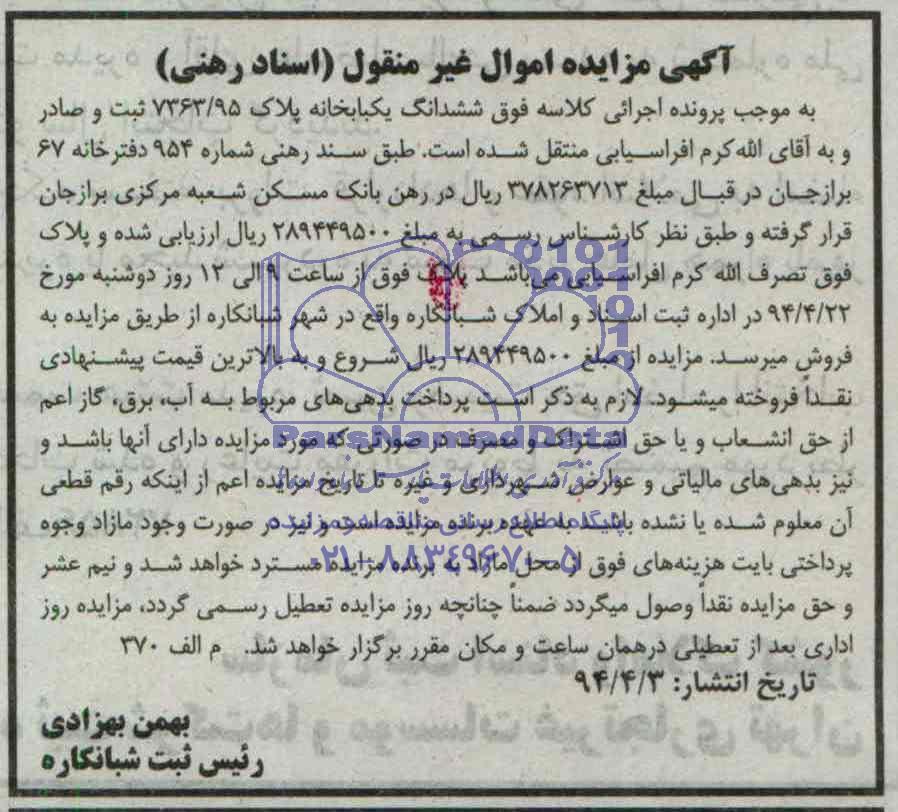 آگهی مزایده اموال غیر منقول (اسناد رهنی)
به موجب پرونده اجرائی کلاسه فوق ششدانگ یکبابخانه پلاک ۷۳۶۳/۹۵ ثبت و صادر
و به آقای الله کرم افراسیابی منتقل شده است. طبق سند رهنی شماره ۹۵۴ دفترخانه ۶۷
برازجان در قبال مبلغ ۳۷۸۲۶۳۷۱۳ ریال در رهن بانک مسکن شعبه مرکزی برازجان
قرار گرفته و طبق نظر کارشناس رسمی به مبلغ ۲۸۹۴۴۹۵۰۰ ریال ارزیابی شده و پلاک
فوق تصرف الله کرم افراسیابی می‌باشد پلاک فوق از ساعت ۹ الی ۱۲ روز دوشنبه مورخ
۹۴/۴/۲۲ در اداره ثبت اسناد و املاک شبانکاره واقع در شهر شبانکاره از طریق مزایده به
فروش میرسد. مزایده از مبلغ ۲۸۹۴۴۹۵۰۰ ریال شروع و به بالاترین قیمت پیشنهادی
نقداً فروخته میشود. لازم به ذکر است پرداخت بدهی‌های مربوط به آب، برق، گاز اعم
از حق انشعاب و یا حق اشتراک و مصرف در صورتی که مورد مزایده دارای آنها باشد و
نیز بدهی‌های مالیاتی و عوارض شهرداری و غیره تا تاریخ مزایده اعم از اینکه رقم قطعی
آن معلوم شده یا نشده باشد به عهده برنده مزایده است و نیز در صورت وجود مازاد وجوه
پرداختی بابت هزینه‌های فوق از محل مازاد به برنده مزایده مسترد خواهد شد و نیم عشر
و حق مزایده نقداً وصول میگردد ضمناً چنانچه روز مزایده تعطیل رسمی گردد، مزایده روز
اداری بعد از تعطیلی درهمان ساعت و مکان مقرر برگزار خواهد شد. م الف ۳۷۰
تاریخ انتشار: ۹۴/۴/۳
بهمن بهزادی
رئیس ثبت شبانکاره
ParsNamadData
پایگاه اطلاع رسانی مناقصه و مزایده
۰۲۱-۸۸۳۴۹۶۷۰-۵